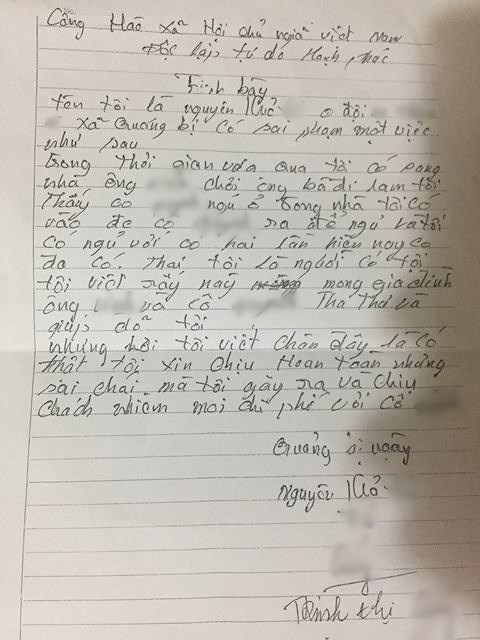 Công Hào xã Hội chủ nghiã việt Nam
Độc lập, tự do Hạnh phúc
Trình bầy
tên tôi là nguyên Khổ ở đội
xã Quảng bị có sai phạm một việc
như sau
trong thời gian vưa qua tôi có sang
nhà ông chời ông bà đi lam tôi
Thấy co ngu ở trong nhà tôi có
vào đe co ra để ngủ và tôi
có ngủ với có hai lần hiện nay co
đa có. Thai tôi là người có tội
tôi viết rấy nay mong gia đình
ông và cô Tha Thơ và
giúp dỡ tôi
những nời tôi viết chên đây là có
thật tôi xin chịu Hoan toan những
sai chai mà tôi gây ra và chịu
chách nhiệm moi chi phế với cô
Quảng bị ngày
Nguyên Khổ
Trinh thị